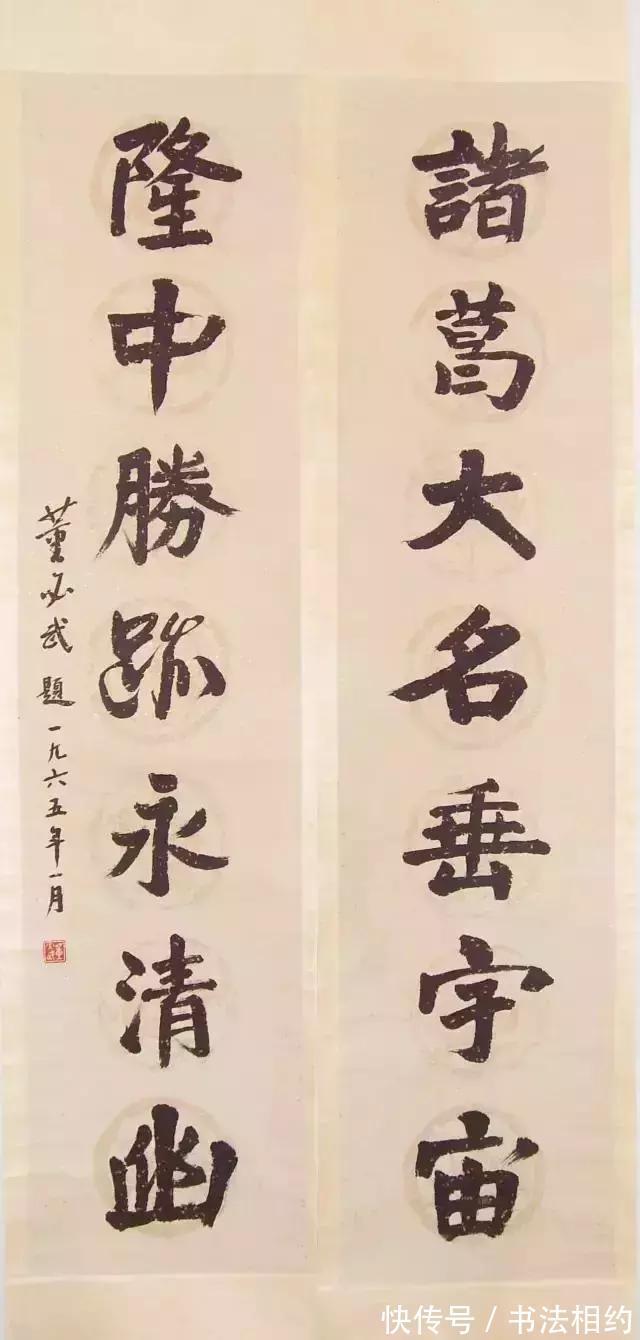 諸葛大名垂宇宙
隆中勝跡永清幽
董必武題一九六五年一月
快传号 / 书法相约